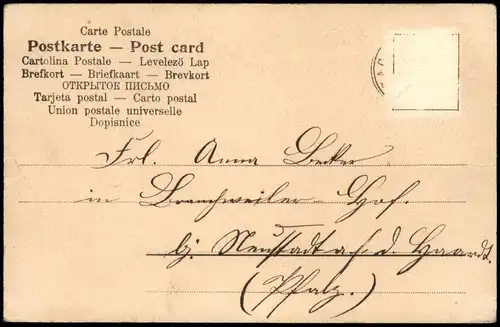 Carte Postale
Postkarte — Post card
Cartolina Postale — Levelező Lap
Brefkort — Briefkaart — Brevkort
ОТКРЫТОЕ ПИСЬМО
Tarjeta postal — Carto postal
Union postale universelle
Dopisnice
Frl. Anna Becker
in Branchweiler-Hof.
bj. Neustadt a/ d. Haardt.
(Pfalz.)